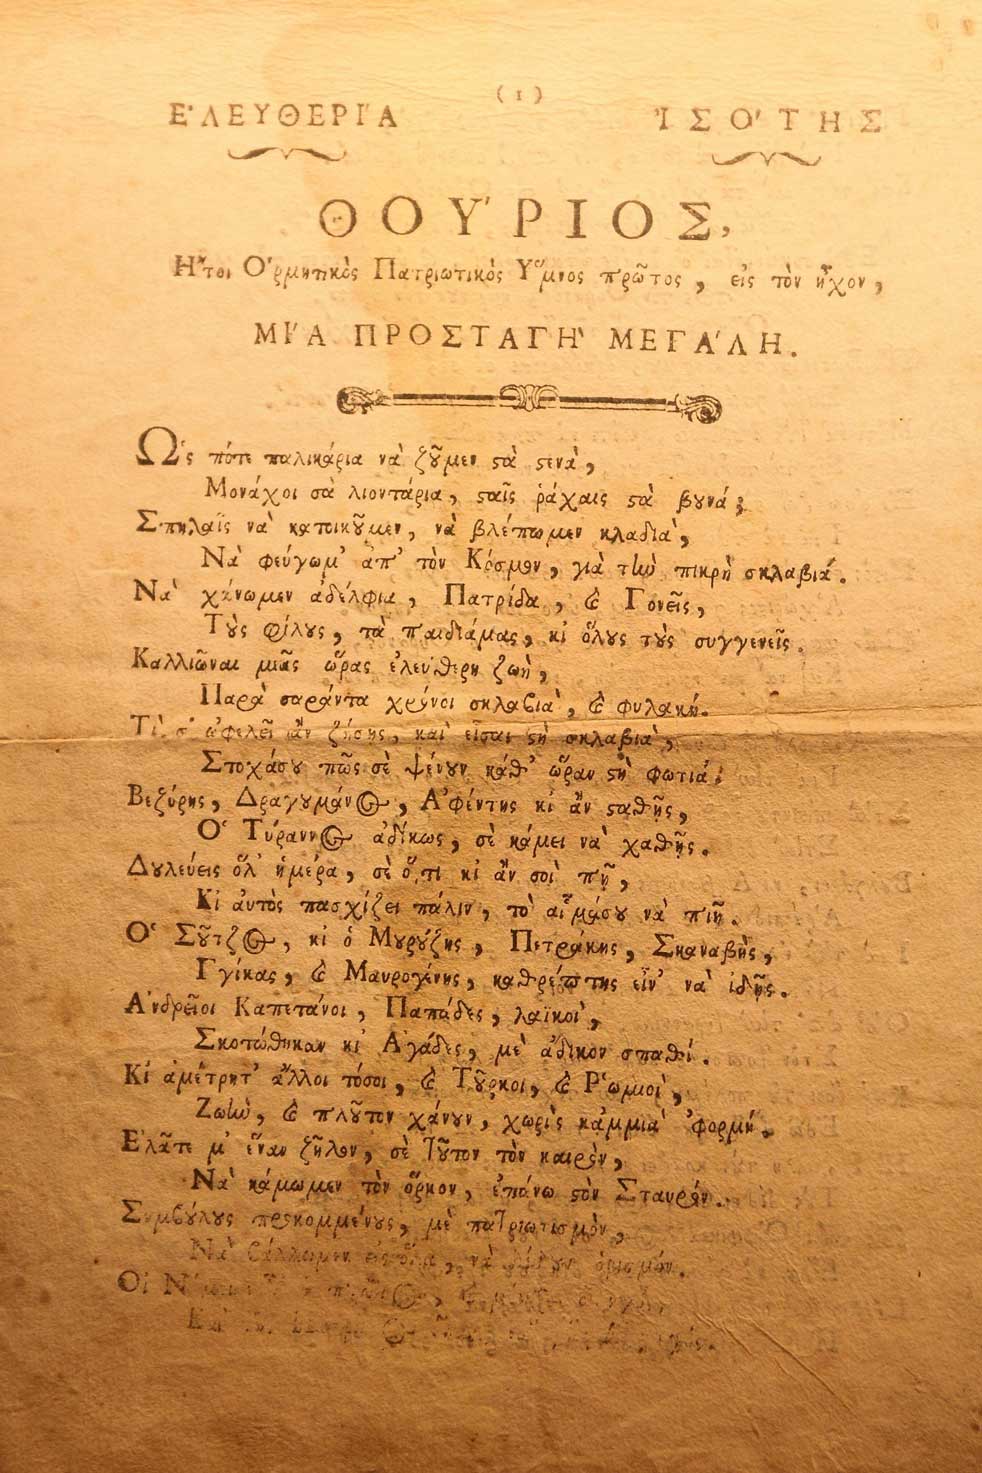 (1)
Ε᾿ΛΕΥΘΕΡΙ΄Α ἸΣΟ΄ΤΗΣ
ΘΟΥ΄ΡΙΟΣ,
Ἤτοι Ὁρμητικὸς Πατριωτικὸς Ὕμνος πρῶτος, εἰς τὸν ἦχον,
ΜΙ΄Α ΠΡΟΣΤΑΓΗ` ΜΕΓΑ΄ΛΗ.
Ὡς πότε παλικάρια νὰ ζȣ͂μεν ϛὰ ϛενὰ,
Μονάχοι σὰ λιοντάρια, ϛαῖς ῥάχαις ϛὰ βȣνά;
Σπηλαῖς νὰ κατοικȣ͂μεν, νὰ βλέπωμεν κλαδιὰ,
Νὰ φεύγωμ᾿ ἀπ᾿ τὸν Κόσμον, γιὰ τὴν πικρὴ σκλαβιά.
Νὰ χάνωμεν ἀδέλφια, Πατρίδα, ϗ Γονεῖς,
Τȣ̀ς φίλȣς, τὰ παιδιάμας, κι ὅλȣς τȣ̀ς συγγενεῖς.
Καλλιῶναι μιᾶς ὥρας ἐλεύθερη ζωὴ,
Παρὰ σαράντα χρόνοι σκλαβιὰ, ϗ φυλακή.
Τὶ σ᾿ ὠφελεῖ ἂν ζήσῃς, καὶ εἶσαι ϛὴ σκλαβιὰ,
Στοχάσȣ πῶς σὲ ψένȣν κάθ᾿ ὥραν ϛὴ φωτιά.
Βεζύρης, Δραγȣμάνος, Ἀφέντης κι ἂν ϛαθῇς,
Ὁ Τύραννος ἀδίκως, σὲ κάμει νὰ χαθῇς.
Δȣλεύεις ὅλ᾿ ἡμέρα, σὲ ὅ,τι κι ἂν σοὶ πῇ,
Κι αὐτὸς πασχίζει πάλιν, τὸ αἷμάσȣ νὰ πιῇ.
Ὁ Σȣ͂τζος, κι ὁ Μȣρȣ́ζης, Πετράκης, Σκαναβὴς,
Γγίκας, ϗ Μαυρογένης, καθρέπτης εἶν᾿ νὰ ἰδῇς.
Ἀνδρεῖοι Καπετάνοι, Παπάδες, λαϊκοὶ,
Σκοτώθηκαν κι Ἀγάδες, μὲ ἄδικον σπαθί.
Κι ἀμέτρητ᾿ ἄλλοι τόσοι, ϗ Τȣ͂ρκοι, ϗ Ῥωμιοὶ,
Ζωὴν, ϗ πλȣ͂τον χάνȣν, χωρὶς κἀμμιὰ ᾿φορμή.
Ἐλᾶτε μ᾿ ἕναν ζῆλον, σὲ τȣ͂τον τὸν καιρὸν,
Νὰ κάμωμεν τὸν ὅρκον, ἐπάνω ϛὸν Σταυρόν.
Συμβȣ́λȣς προκομμένȣς, μὲ πατριωτισμὸν,
Νὰ βάλλωμεν εἰς ὅλα, νὰ δίδȣν ὁρισμόν.
Οἱ